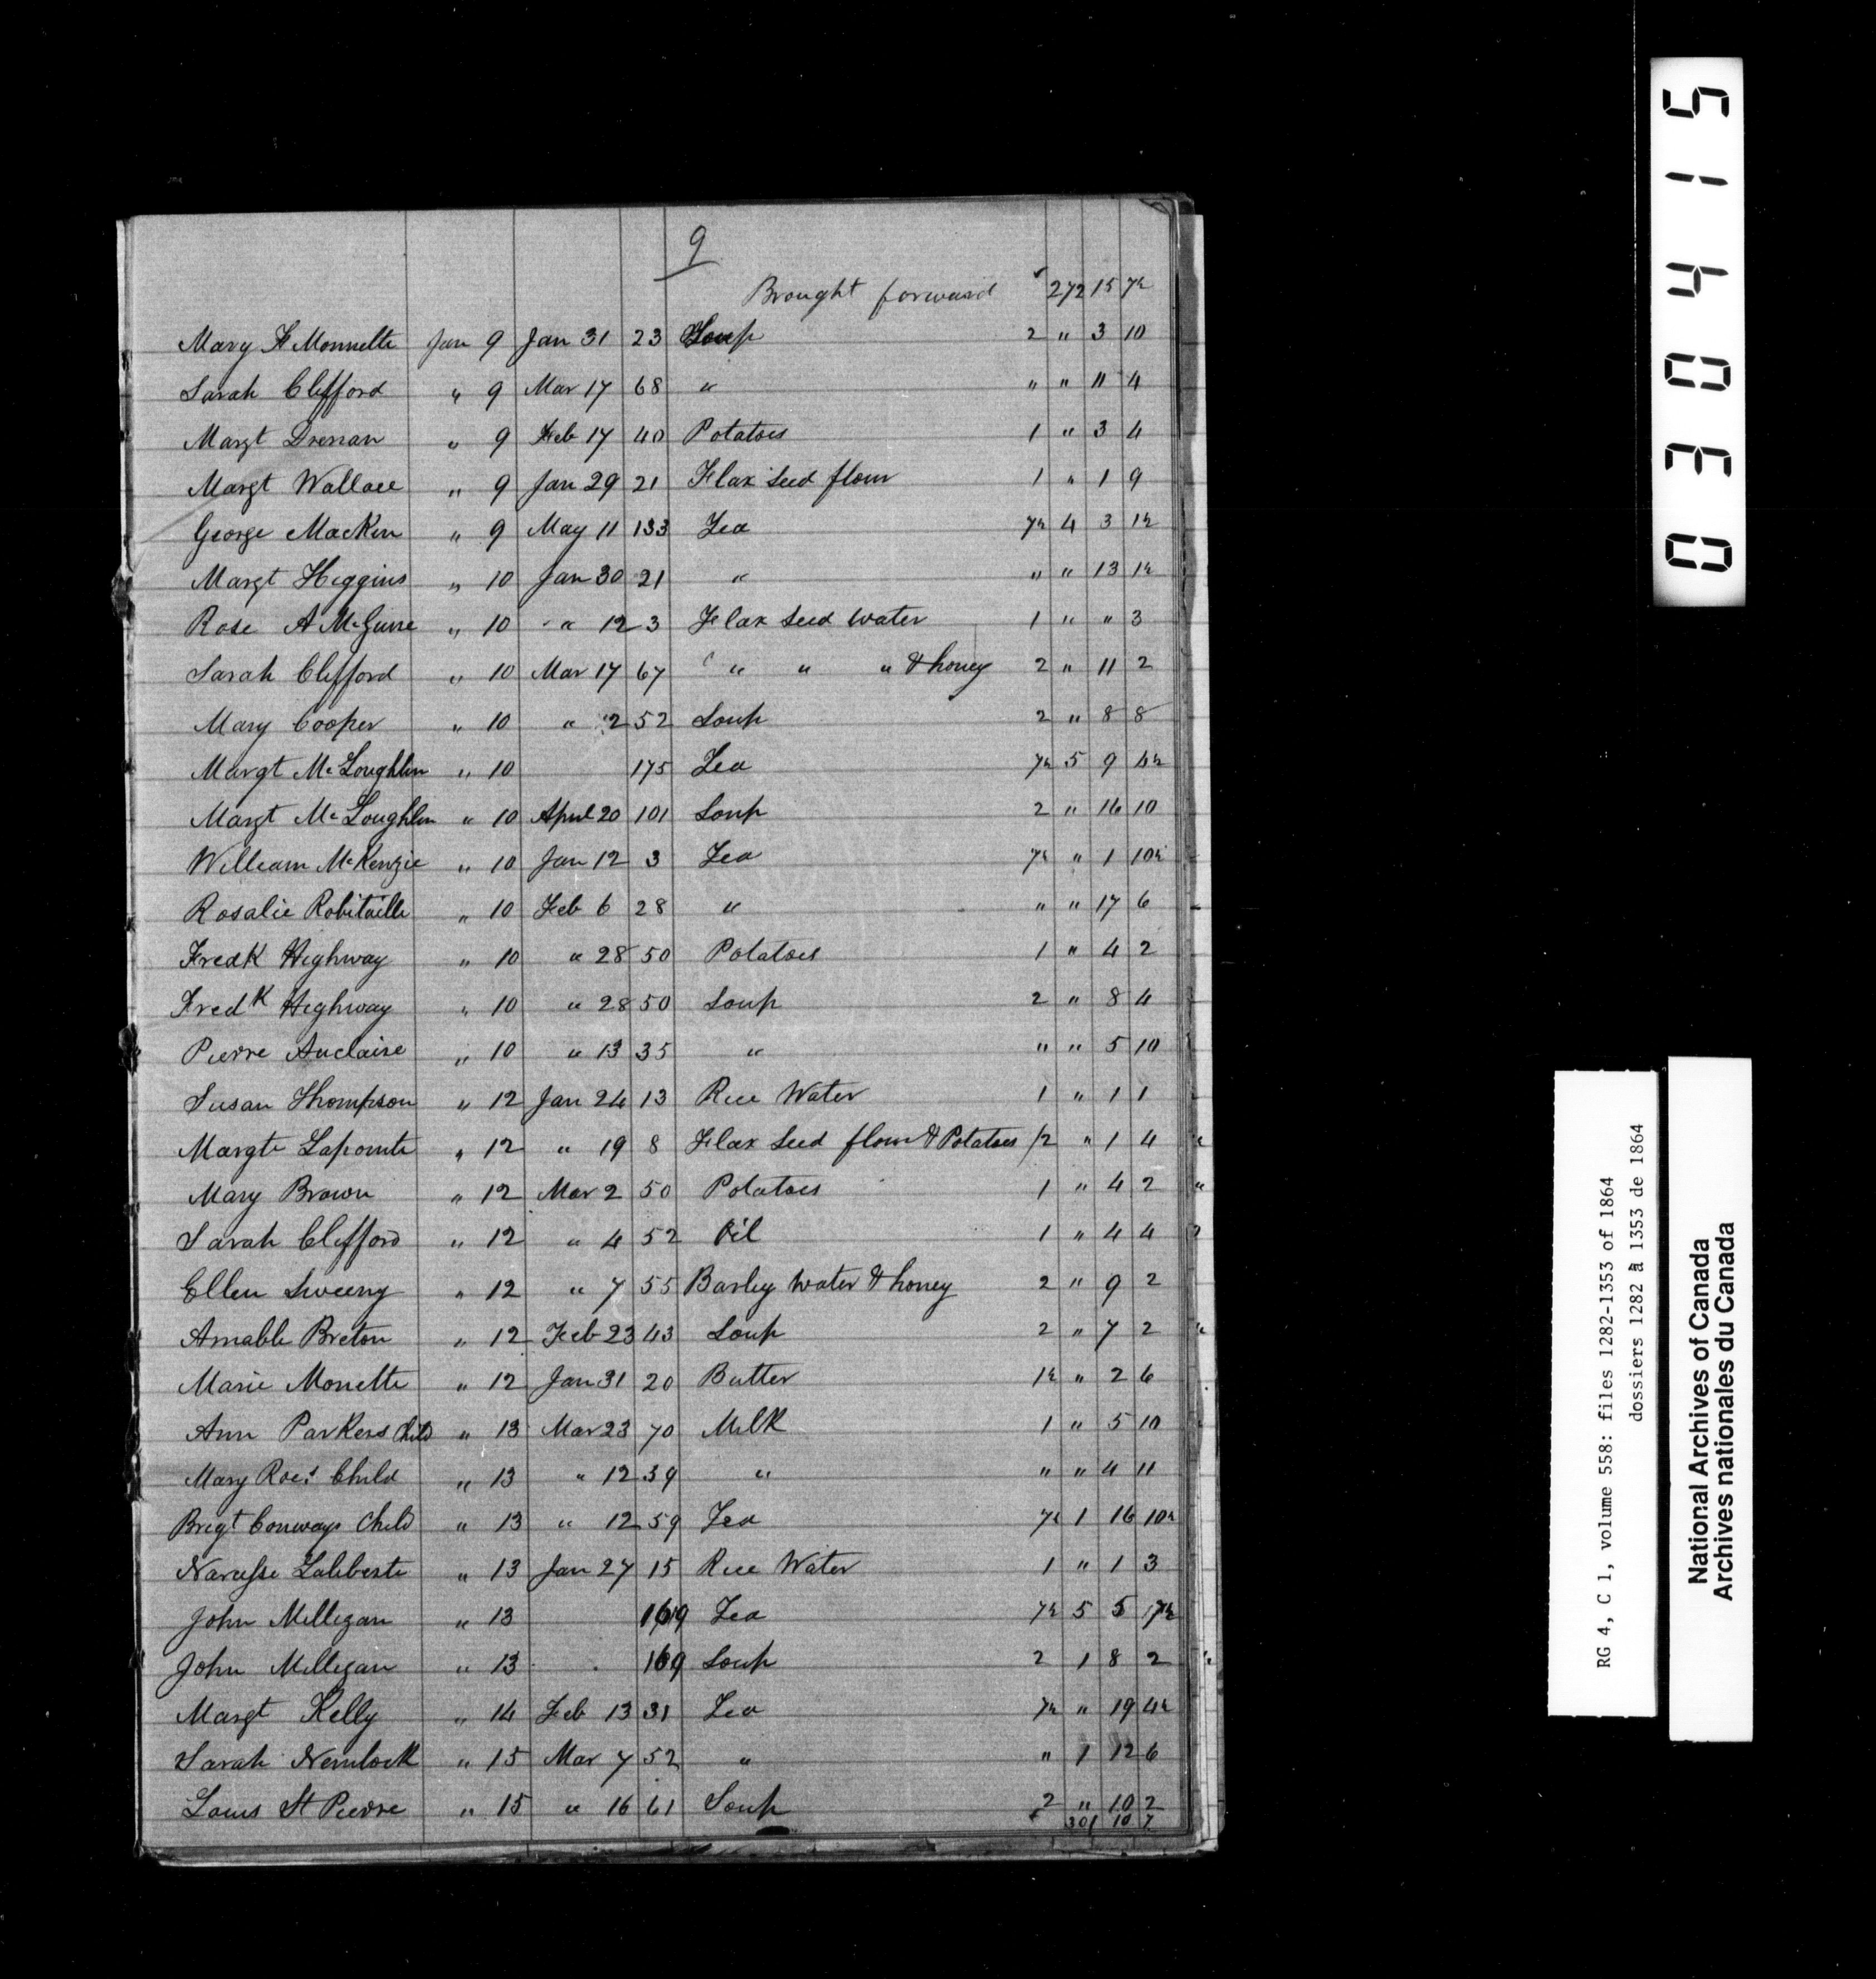 9
Brought forward £ 272 15 7½
Mary A Monnette Jan 9 Jan 31 23 Soup 2 " 3 10
Sarah Clifford " 9 Mar 17 68 " " " 11 4
Margt Drenan " 9 Feb 17 40 Potatoes 1 " 3 4
Margt Wallace " 9 Jan 29 21 Flax Seed flour 1 " 1 9
George Macken " 9 May 11 133 Tea 7½ 4 3 1½
Margt Higgins " 10 Jan 30 21 " " " 13 1½
Rose A McGuire " 10 " 12 3 Flax Seed Water 1 " " 3
Sarah Clifford " 10 Mar 17 67 " " " & honey 2 " 11 2
Mary Cooper " 10 " 2 52 Soup 2 " 8 8
Margt McLoughlin " 10 175 Tea 7½ 5 9 4½
Margt McLoughlin " 10 April 20 101 Soup 2 " 16 10
William McKenzie " 10 Jan 12 3 Tea 7½ " 1 10½
Rosalie Robitaille " 10 Feb 6 28 " " " 17 6
Fredk Highway " 10 " 28 50 Potatoes 1 " 4 2
Fredk Highway " 10 " 28 50 Soup 2 " 8 4
Pierre Auclaire " 10 " 13 35 " " " 5 10
Susan Thompson " 12 Jan 24 13 Rice Water 1 " 1 1
Margte Lapointe " 12 " 19 8 Flax Seed flour & Potatoes 2 " 1 4
Mary Brown " 12 Mar 2 50 Potatoes 1 " 4 2
Sarah Clifford " 12 " 4 52 Oil 1 " 4 4
Ellen Sweeny " 12 " 7 55 Barley Water & honey 2 " 9 2
Amable Breton " 12 Feb 23 43 Soup 2 " 7 2
Marie Monette " 12 Jan 31 20 Butter 1½ " 2 6
Ann Parkers Child " 13 Mar 23 70 Milk 1 " 5 10
Mary Roe's Child " 13 " 12 39 " " " 4 11
Brigt Conways Child " 13 " 12 59 Tea 7½ 1 16 10½
Narcisse Laliberte " 13 Jan 27 15 Rice Water 1 " 1 3
John Milligan " 13 169 Tea 7½ 5 5 7½
John Milligan " 13 169 Soup 2 1 8 2
Margt Kelly " 14 Feb 13 31 Tea 7½ " 19 4½
Sarah Nemlock " 15 Mar 7 52 " " 1 12 6
Louis St Pierre " 15 " 16 61 Soup 2 " 10 2
£ 301 10 7
0 3 0 4 1 5
RG 4, C 1, volume 558: files 1282-1353 of 1864
dossiers 1282 à 1353 de 1864
National Archives of Canada
Archives nationales du Canada